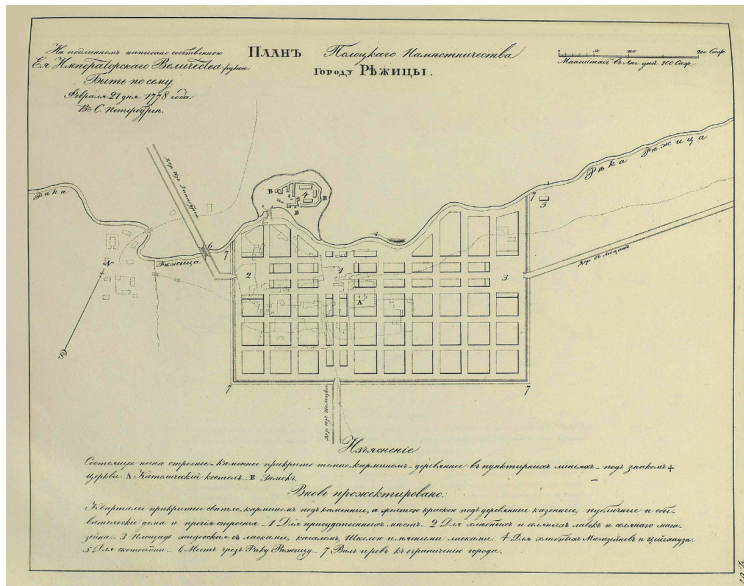 На подлинномъ написано собственною
Ея Императорскаго Величества рукою
Быть по сему.
Февраля 21 дня 1778 года
Въ С. Петербургѣ.
ПЛАНЪ Полоцкаго Намѣстничества
Городу РѢЖИЦЫ.
50 100 200 Саж.
Масштабъ въ 200 Саж.
Рѣка Рѣжица
Рѣка
Рѣжица
В В В
4
6
7
7
5
2
4
3
А
7
7
Изъясненіе
Состоящее нынѣ строеніе каменное прикрыто темно карминомъ деревянное въ пунктирныхъ линіяхъ подъ знакомъ +
Церкви. А Католическій костелъ. В Замокъ.
Вновь прожектировано:
Кварталы прикрытые свѣтло карминомъ подъ каменные, а желтою краскою подъ деревянные казенные, публичные и обы-
вательскіе дома и прочія строенія. 1 Для присудственныхъ мѣстъ. 2 Для хлѣбныхъ и соляныхъ лавокъ и соляного мага-
зейна. 3 Площадь жидовская съ лавками, кагаломъ, школою и мясными лавками. 4 Для хлѣбныхъ Магазейновъ и Цейхгауза.
5 Для скотобойни. 6 Мостъ чрезъ Рѣку Рѣжицу. 7 Валъ и ровъ къ ограниченію города.